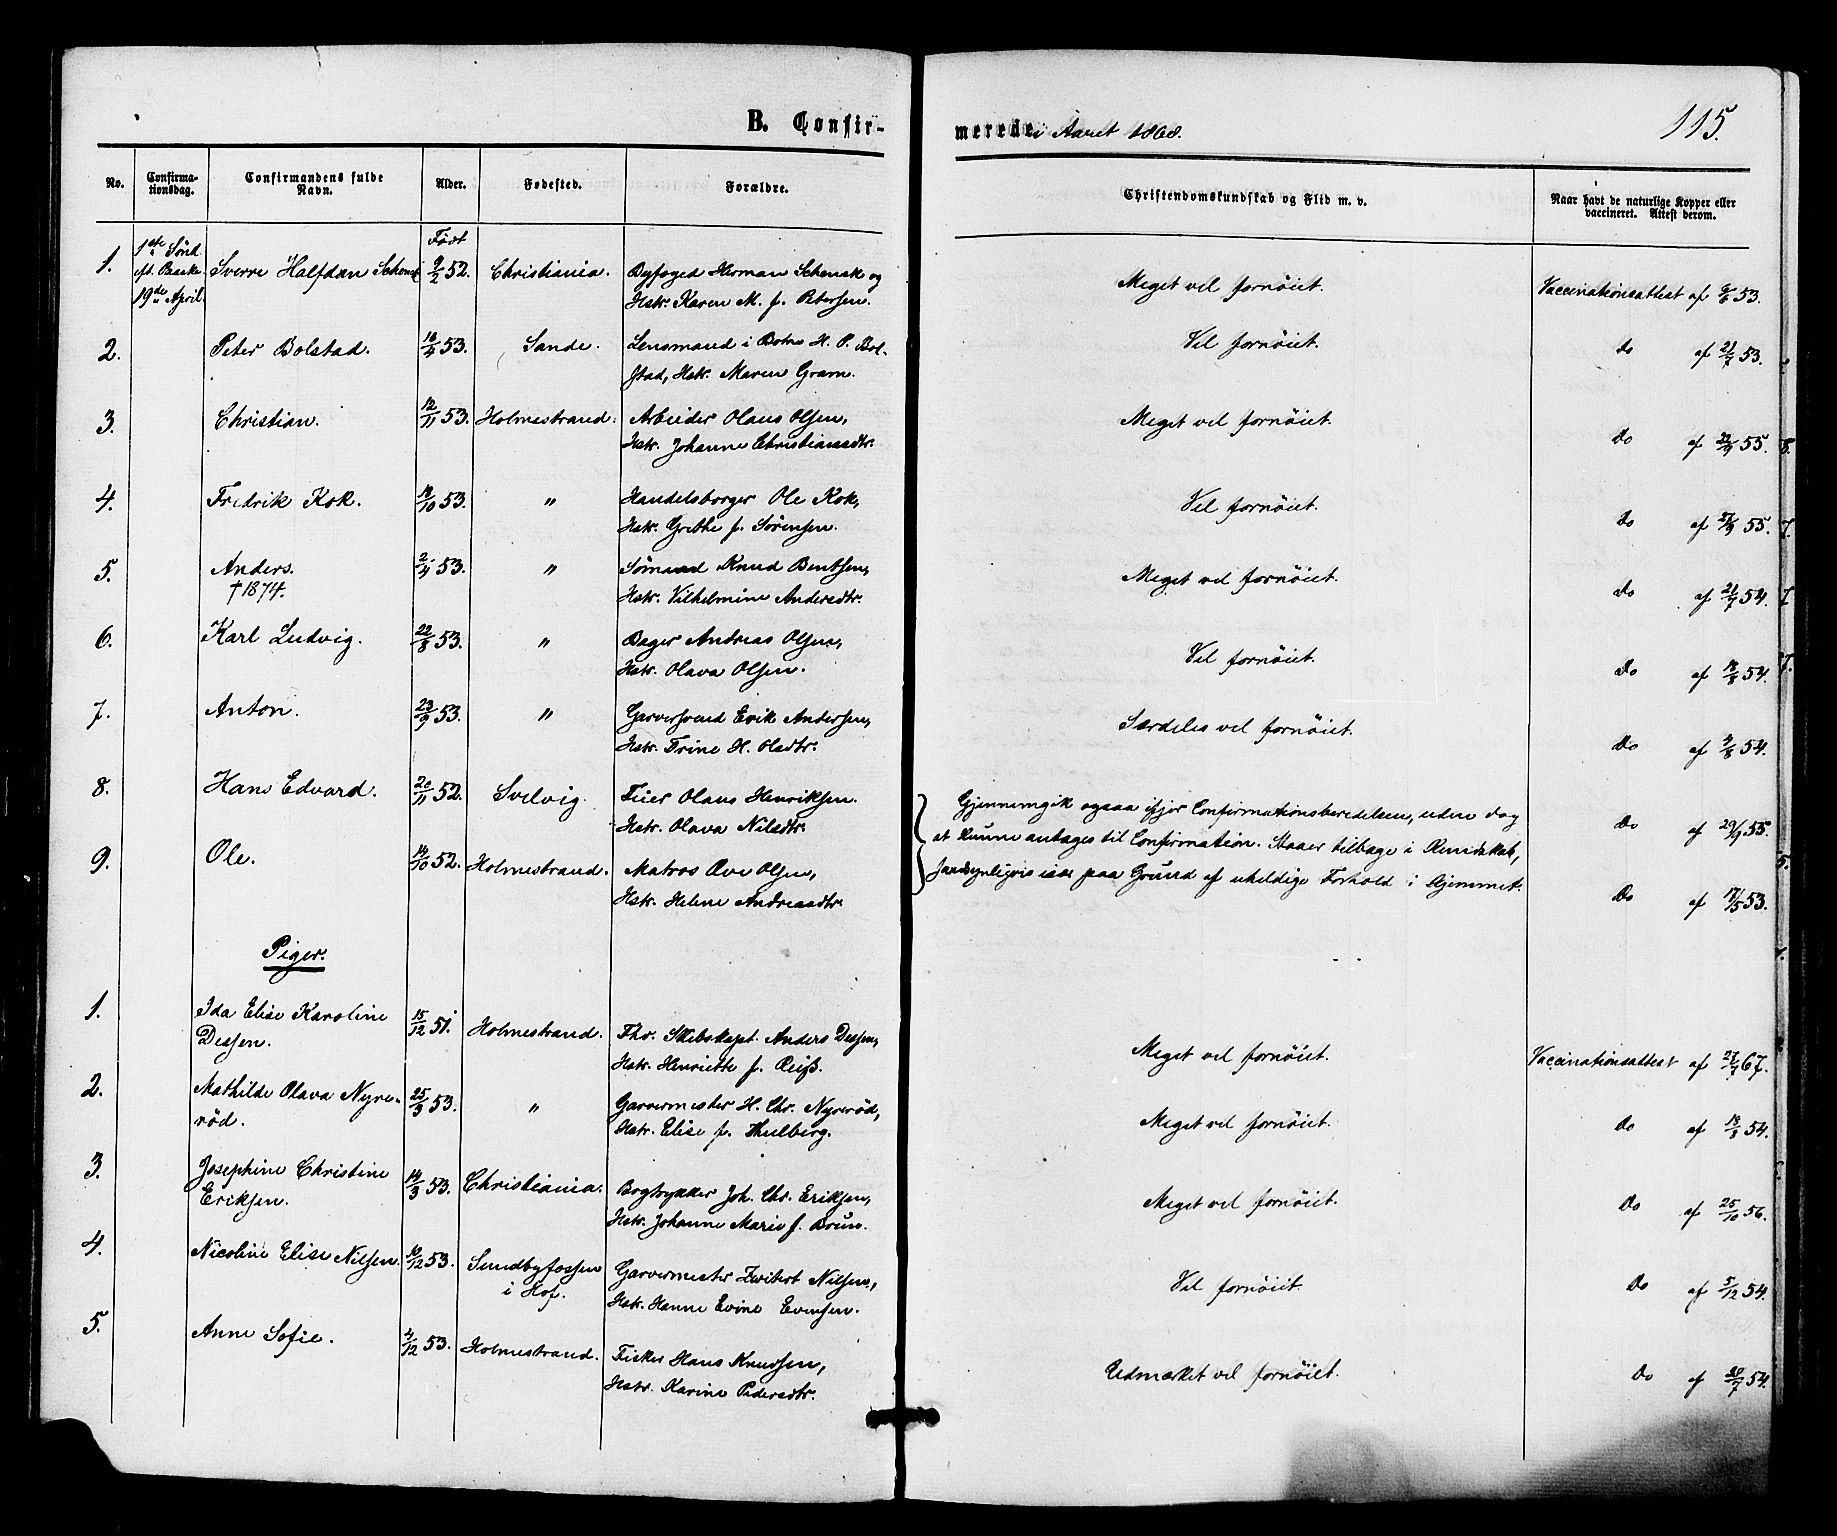 B. Confir-
merede i Aaret 1868.
115.
No.
Confirma-
tionsdag.
Confirmandens fulde
Navn.
Alder.
Fødested.
Forældre.
Christendomskundskab og Flid m. v.
Naar havt de naturlige Kopper eller
vaccineret. Attest derom.
1. 1ste Sønd. eft. Paaske 19de April. Sverre Halfdan Schenck Født 9/2 52. Christiania. Byfoged Herman Schenck og
Hstr. Karen M. f. Petersen. Meget vel fornøiet. Vaccinationsattest af 9/6 53.
2. Peter Bolstad. 16/4 53. Sande. Lensmand i Botne H. P. Bol-
stad, Hstr. Maren Gram. Vel fornøiet. Do af 21/7 53.
3. Christian. 12/11 53. Holmestrand. Arbeider Olaus Olsen,
Hstr. Johanne Christiansdtr. Meget vel fornøiet. Do af 55.
4. Fredrik Kok. 53. " Handelsborger Ole Kok,
Hstr. Grethe f. Sørensen. Vel fornøiet. Do af 27/9 55.
5. Anders. 2/4 53. " Sømand Knud Bentsen,
† 1874. Hstr. Vilhelmine Andersdtr. Meget vel fornøiet. Do af 21/7 54.
6. Karl Ludvig. 22/8 53. " Bager Andreas Olsen,
Hstr. Olava Olsen. Vel fornøiet. Do af 18/8 54.
7. Anton. 23/9 53. " Garversvend Erik Andersen,
Hstr. Trine H. Olsdtr. Særdeles vel fornøiet. Do af 54.
8. Hans Edvard. 20/11 52. Svelvig. Olaus Henriksen.
Hstr. Olava Nilsdtr. Do af 29/9 55.
9. Ole. 14/10 52. Holmestrand. Matros Ove Olsen,
Hstr. Helene Andreasdtr. Do af 17/5 53.
Gjennemgik ogsaa ifjor Confirmationsberedelsen, uden dog
at kunne antages til Confirmation. Staaer tilbage i Kundskab,
sandsynligvis især paa Grund af uheldige Forhold i Hjemmet.
Piger.
1. Ida Elise Karoline
Dessen. 15/12 51. Holmestrand. Fhv. Skibskapt. Anders Dessen,
Hstr. Henriette f. Reiß. Meget vel fornøiet. Vaccinationsattest af 27/7 67.
2. Mathilde Olava Nyre-
rød. 25/3 53. " Garvermester H. Chr. Nyrerød,
Hstr. Elise f. Thulberg. Meget vel fornøiet. Do af 18/8 54.
3. Josephine Christine
Eriksen. 14/3 53. Christiania. Bogtrykker Joh. Chr. Eriksen,
Hstr. Johanne Marie f. Brun. Meget vel fornøiet. Do af 25/10 56.
4. Nicoline Elise Nilsen. 16/12 53. Sundbyfossen
i Hof. Garvermester Nilsen,
Hstr. Hanne Evine Evensen. Vel fornøiet. Do af 5/12 54.
5. Anne Sofie. 4/12 53. Holmestrand. Fisker Hans Knudsen,
Hstr. Karine Pedersdtr. Udmærket vel fornøiet. Do af 20/7 54.